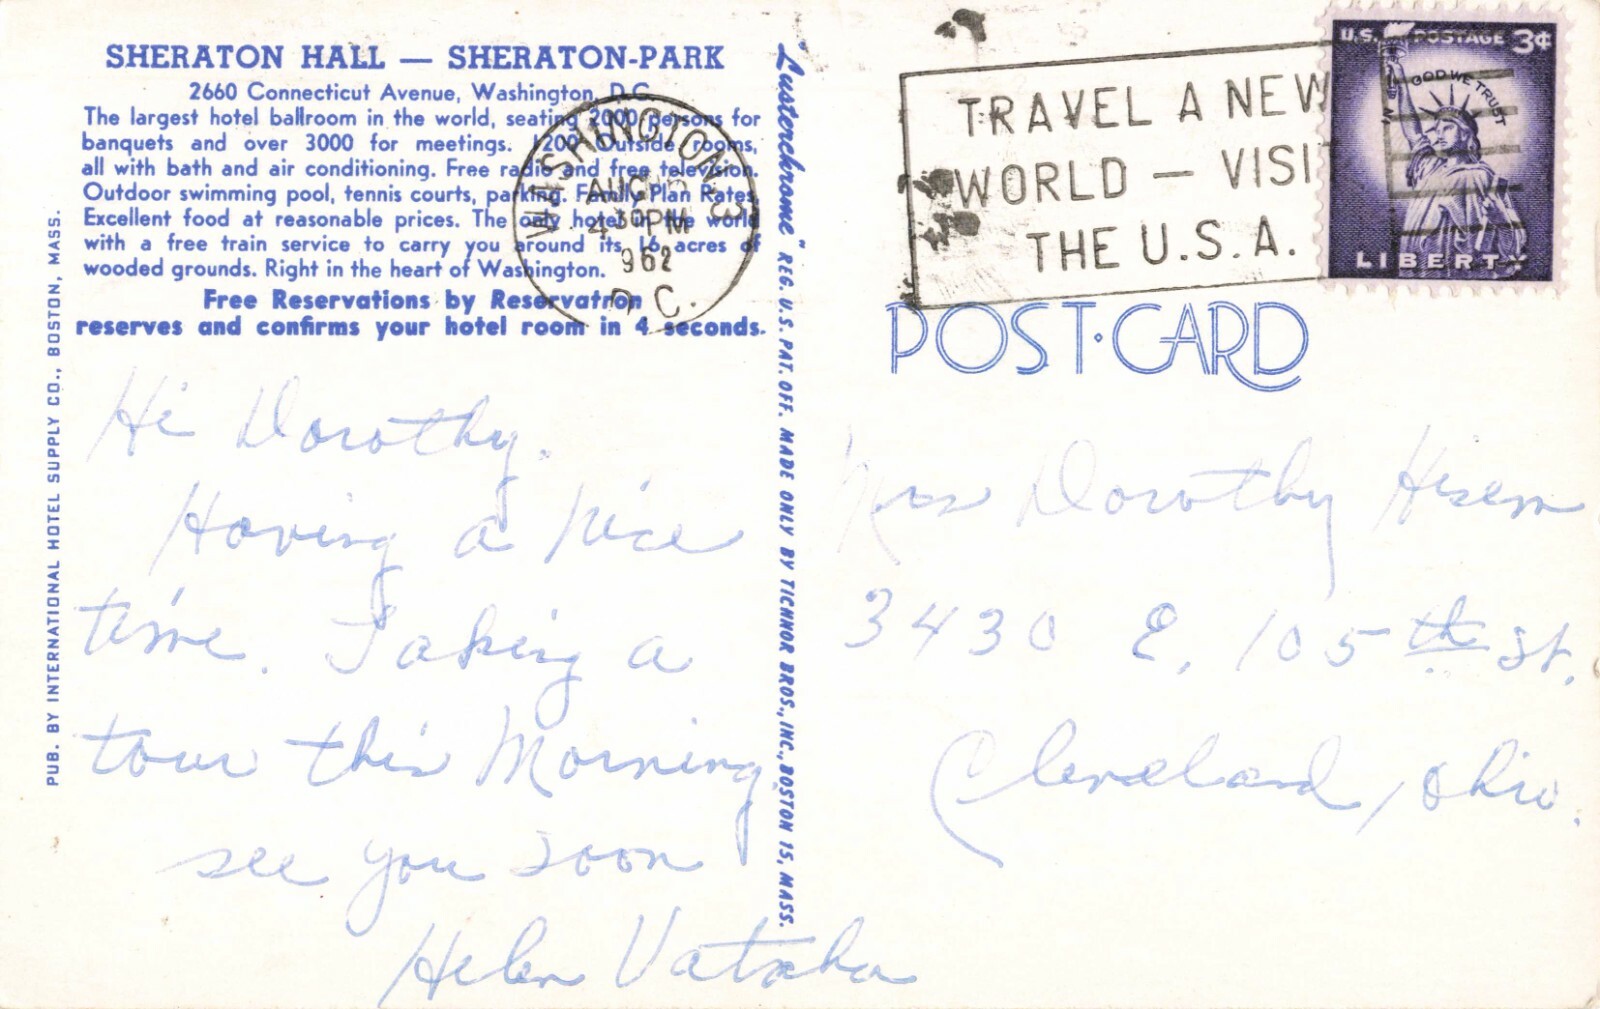 SHERATON HALL — SHERATON-PARK
2660 Connecticut Avenue, Washington, D.C.
The largest hotel ballroom in the world, seating 2000 persons for
banquets and over 3000 for meetings. 1200 Outside rooms,
all with bath and air conditioning. Free radio and free television.
Outdoor swimming pool, tennis courts, parking. Family Plan Rates.
Excellent food at reasonable prices. The only hotel in the world
with a free train service to carry you around its 16 acres of
wooded grounds. Right in the heart of Washington.
Free Reservations by Reservatron
reserves and confirms your hotel room in 4 seconds.
PUB. BY INTERNATIONAL HOTEL SUPPLY CO., BOSTON, MASS.
Hi Dorothy.
Having a Nice
time. Taking a
tour this Morning
see you soon
Helen
"Lusterchrome" REG. U.S. PAT. OFF. MADE ONLY BY TICHNOR BROS., INC., BOSTON 15, MASS.
WASHINGTON
AUG
430PM
962
D.C.
TRAVEL A NEW
WORLD — VISI
THE U.S.A.
U.S. POSTAGE 3¢
IN GOD WE TRUST
LIBERTY
POST·CARD
Mrs Dorothy
3430 E. 105th St.
Cleveland, Ohio.